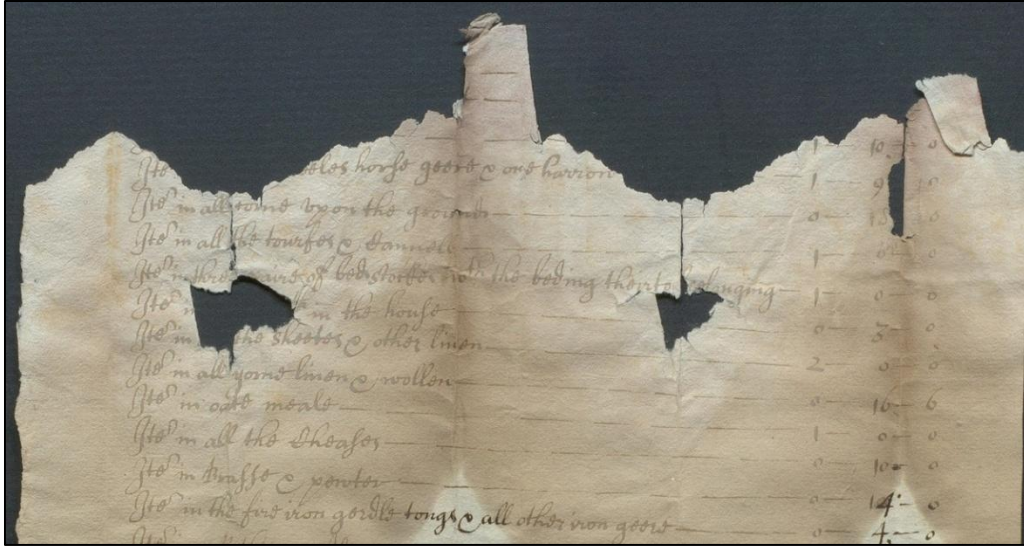 1 — 10 — 0
Ite eeles horse geere & one harrow 1 9 0
Ite in all corne vpon the ground — 0 — 13 0
Ite in all the tourfes & — 1 — 0 — 0
Ite in three paire of bedstockes with the beding therto belonging — 1 0 0
Ite in the house — 0 — 3 — 0
Ite in the sheetes & other linen — 2 — 0 — 0
Ite in all yorne linen & wollen — 0 — 16 — 6
Ite in oate meale — 1 — 0 — 0
Ite in all the Cheases — 0 — 10 — 0
Ite in Brasse & pewter — 0 — 14 — 0
Ite in the fire iron gerdle tongs & all other iron geere — 0 — 4 — 0